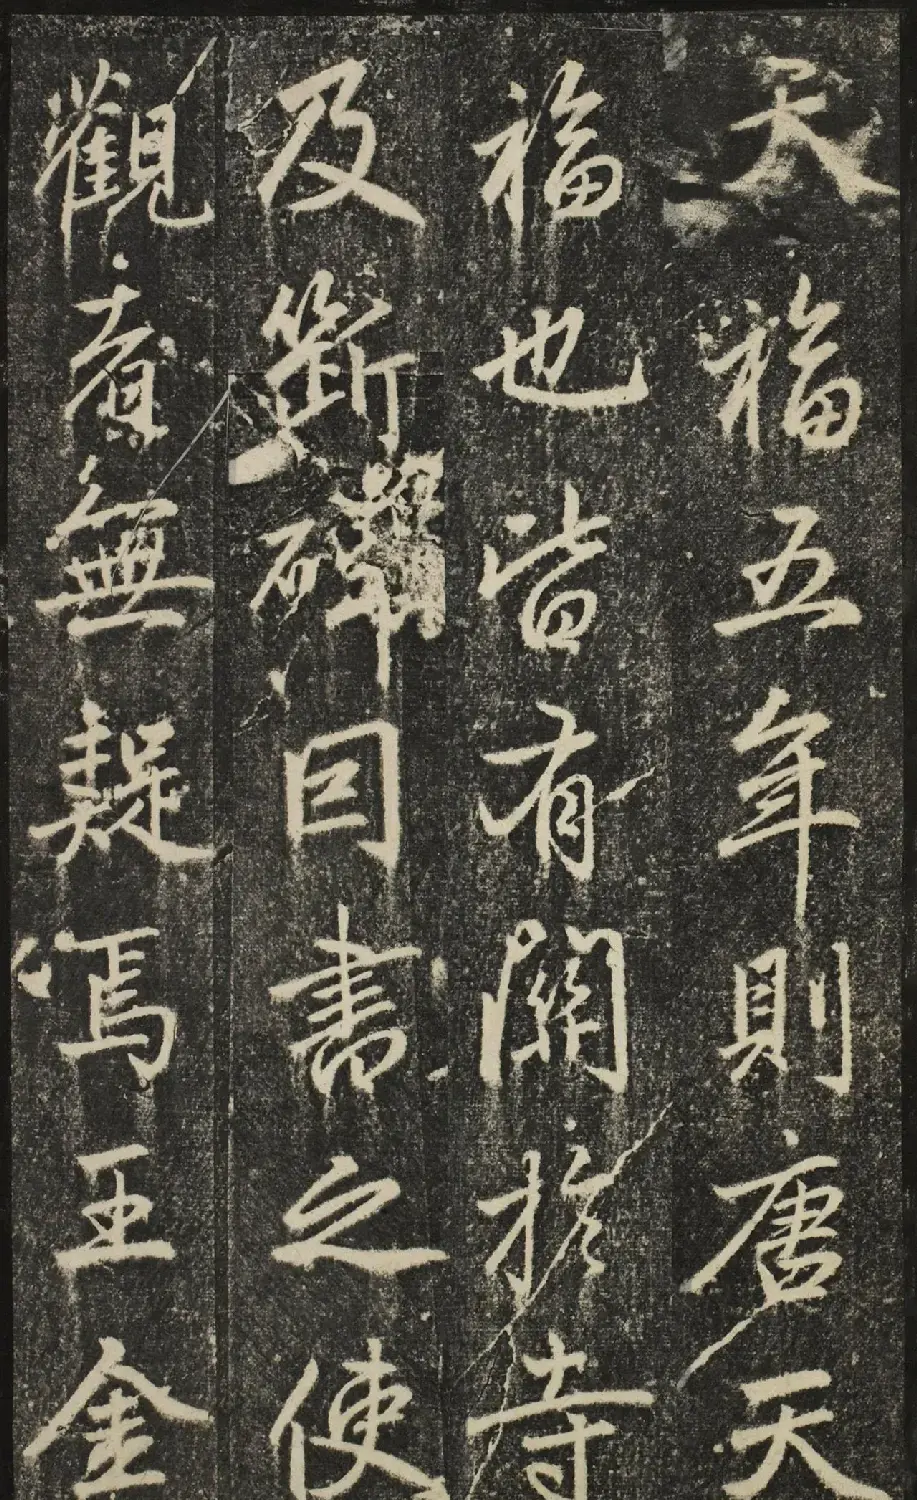 天福五年則唐天
福也皆有關於寺
及斷碑因書之使
觀者無疑焉王金